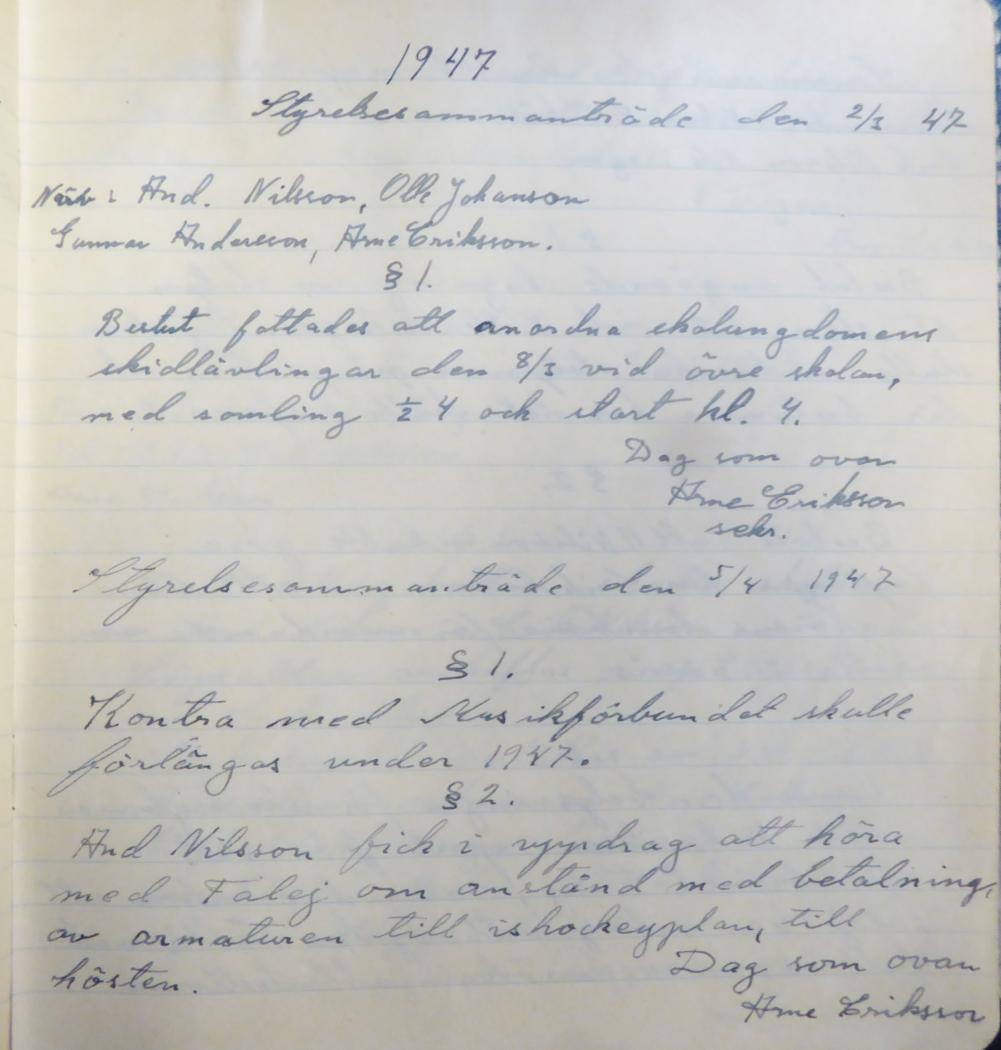 1947
Styrelsesammanträde den 2/3 47
Närv: And. Nilsson, Olle Johanson
Gunnar Andersson, Arne Eriksson.
§ 1.
Beslut fattades att anordna skolungdomens
skidtävlingar den 8/3 vid övre skolan,
med samling ½ 4 och start kl. 4.
Dag som ovan
Arne Eriksson
sekr.
Styrelsesammanträde den 5/4 1947
§ 1.
Kontra med Musikförbundet skulle
förlängas under 1947.
§ 2.
And Nilsson fick i uppdrag att höra
med Falej om anstånd med betalning,
av armaturen till ishockeyplan, till
hösten.
Dag som ovan
Arne Eriksson